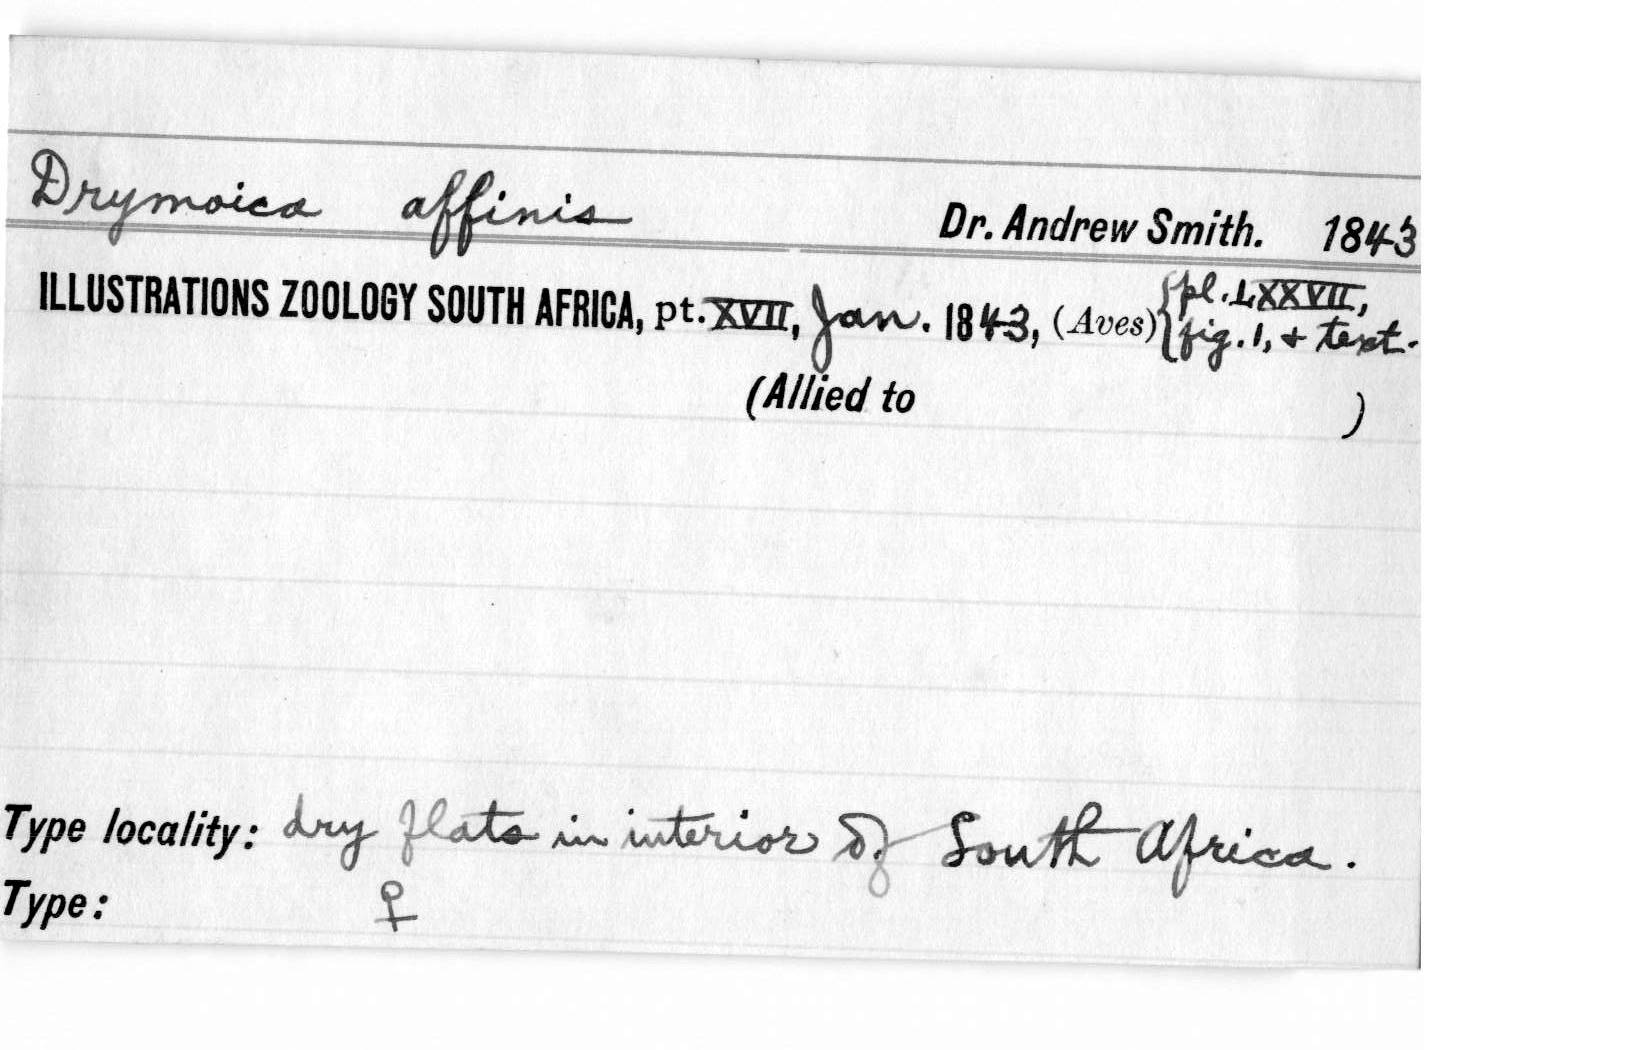 Drymoica affinis Dr. Andrew Smith. 1843
ILLUSTRATIONS ZOOLOGY SOUTH AFRICA, pt. XVII, Jan. 1843, (Aves) { pl. LXXVII,
fig. 1, & text.
(Allied to )
Type locality: dry flats in interior of South Africa.
Type: ♀